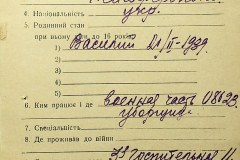 4. Національність
укр.
5. Родинний стан
при ньому діти до 16 років:
1) Василий 20/II-1939.
2)
3)
4)
5)
6. Ким працює і де военная часть 08623.
уборщица
7. Спеціальність
8. Де проживав до війни
Госпитальная